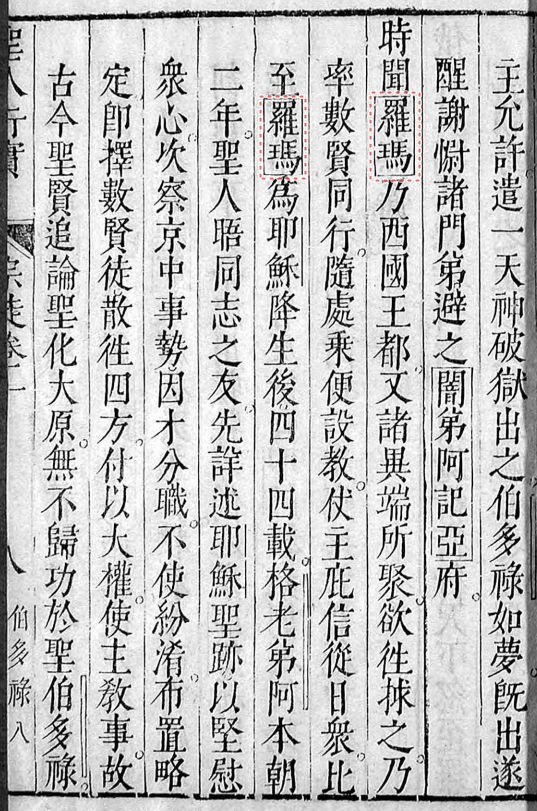 主允許遣一天神破獄出之伯多祿如夢旣出遂
醒謝慰諸門弟避之闇弟阿記亞府
時聞羅瑪乃西國王都又諸異端所聚欲徃捄之乃
率數賢同行隨處乗便設教仗主庇信從日衆比
至羅瑪爲耶穌降生後四十四載格老第阿本朝
二年聖人晤同志之友先詳述耶穌聖跡以堅慰
衆心次察京中事勢因才分職不使紛淆布置略
定卽擇數賢徒散徃四方付以大權使主敎事故
古今聖賢追論聖化大原無不歸功於聖伯多祿
聖人行實
宗徒卷二
八
伯多祿八